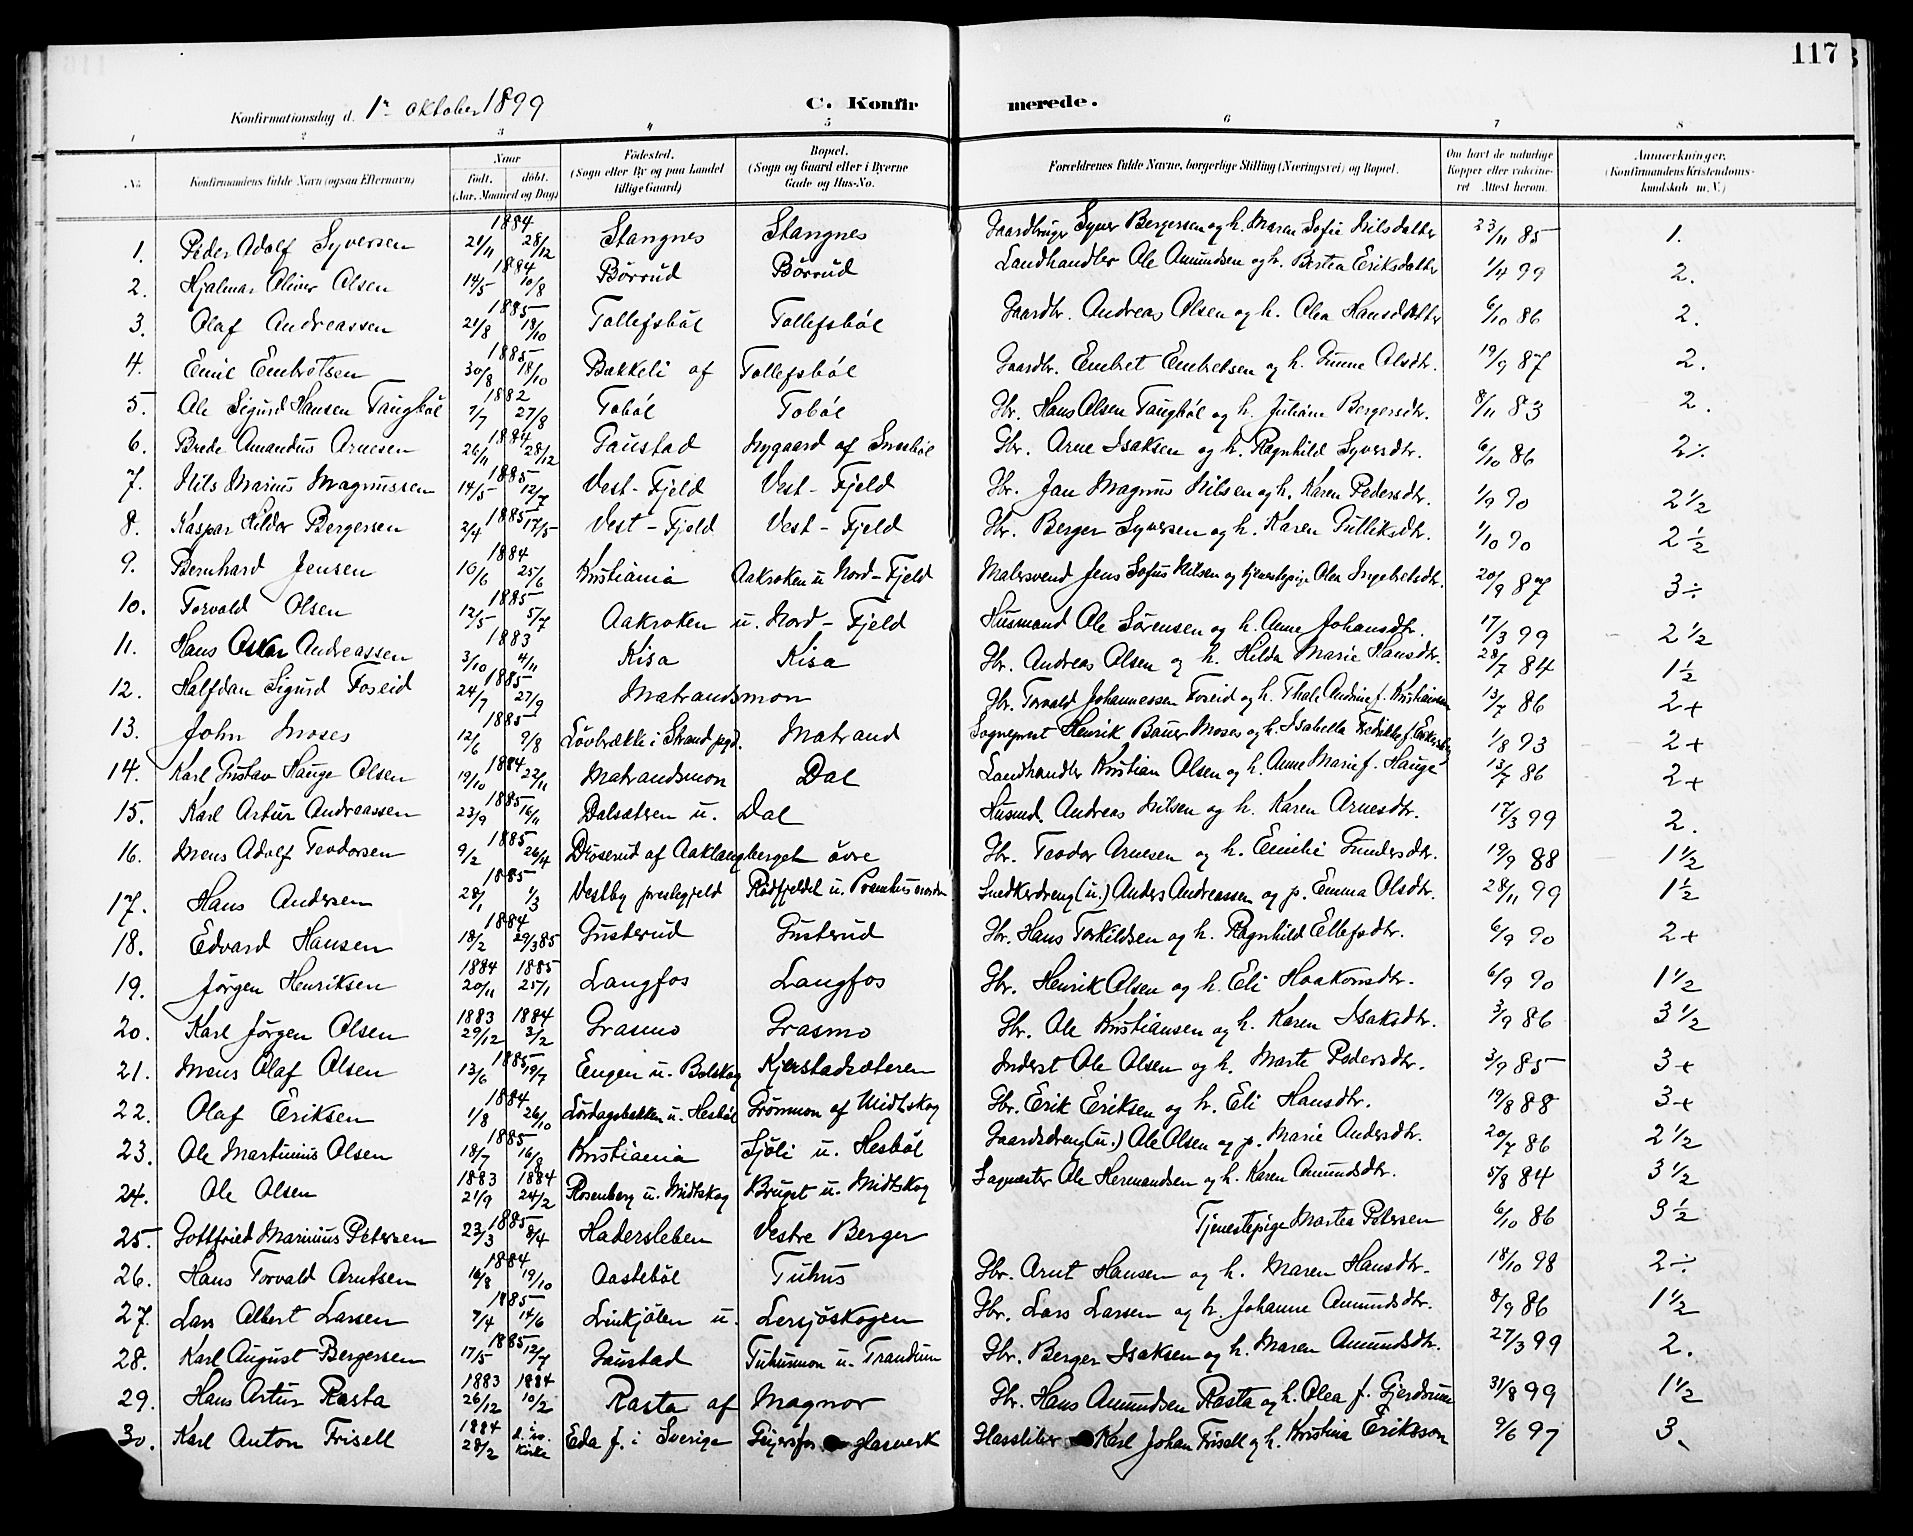 117
Konfirmationsdag d. 1ste oktober 1899 C. Konfirmerede.
1 2 3 4 5 6 7 8
No. Konfirmandens fulde Navn (ogsaa Efternavn) Naar Født. døbt. (Aar, Maaned og Dag) Fødested. (Sogn eller By og paa Landet tillige Gaard) Bopæl. (Sogn og Gaard eller i Byerne Gade og Hus-No. Forældrenes fulde Navne, borgerlige Stilling (Næringsvei) og Bopæl. Om havt de naturlige Kopper eller vaccineret Attest herom. Anmærkninger. (Konfirmandens Kristendomskundskab m. V.)
1. Peder Adolf Syversen 1884 21/11 28/12 Stangnes Stangnes Gaardbruger Syver Bergersen og h. Maren Sofie Nilsdatter 23/11 85 1.
2. Hjalmar Oliver Olsen 1884 14/5 10/8 Børrud Børrud Landhandler Ole Amundsen og h. Bertea Eriksdatter 1/4 99 2.
3. Olaf Andreassen 1885 21/8 18/10 Tollefsbøl Tollefsbøl Gaardbr. Andreas Olsen og h. Olea Hansdatter 6/10 86 2.
4. Emil Embretsen 1885 30/8 18/10 Bakkeli af Tollefsbøl Gaardbr. Embret Embretsen og h. Gunne Olsdtr. 19/9 87 2.
5. Ole Sigurd Hansen Taugbøl 1882 7/7 27/8 Tobøl Tobøl Gbr. Hans Olsen Taugbøl og h. Juliane Bergersdtr. 8/11 83 2.
6. Brede Amandus Arnesen 1884 26/11 28/12 Gaustad Nygaard af Smebøl Gbr. Arne Isaksen og h. Ragnhild Syversdtr. 6/10 86 2÷
7. Nils Marius Magnussen 1885 14/5 12/7 Vest-Fjeld Vest-Fjeld Gbr. Jan Magnus Nilsen og h. Karen Pedersdtr. 1/9 90 2 1/2
8. Kaspar Hilder Bergersen 1885 2/4 17/5 Vest-Fjeld Vest-Fjeld Gbr. Berger Syversen og h. Karen Gulliksdtr. 1/10 90 2 1/2
9. Bernhard Jensen 1884 10/6 25/6 Kristiania Aakroken u. Nord-Fjeld Malersvend Jens Sofus Nilsen og tjenestepige Olea Ingebretsdtr. 20/9 87 3÷
10. Torvald Olsen 1885 12/5 5/7 Aakroken u. Nord-Fjeld Husmand Ole Sørensen og h. Anne Johansdtr. 17/3 99 2 1/2
11. Hans Oskar Andreassen 1883 3/10 4/11 Kisa Kisa Gbr. Andreas Olsen og h. Hilda Marie Hansdtr. 28/7 84 1 1/2
12. Halfdan Sigurd Foseid 1885 24/7 27/9 Matrandsmon Gbr. Torvald Johannessen Foseid og h. Thale Andrine f. Kristiansen 13/7 86 2+
13. John Moses 1885 12/6 9/8 Løvbrække i Strand pgd. Matrand Sogneprest Henrik Bauer Moses og h. Isabella Fredrikke f. 1/8 93 2+
14. Karl Gustav Hauge Olsen 1884 19/10 22/11 Matrandsmon Dal Landhandler Kristian Olsen og h. Anne Marie f. Hauge 13/7 86 2+
15. Karl Artur Andreassen 1885 23/9 16/11 Dalsætren u. Dal Husmd. Andreas Nilsen og h. Karen Arnesdtr. 17/3 99 2.
16. Mons Adolf Teodorsen 1885 9/2 26/4 Duserud af Aaklangberget øvre Gbr. Teodor Arnesen og h. Emilie Gundersdtr. 19/9 88 1 1/2
17. Hans Andersen 1885 28/1 1/3 Vestby prestegjeld Rødfjeldet u. Snedkerdreng (u.) Anders Andreassen og p. Emma Olsdtr. 28/11 99 1 1/2
18. Edvard Hansen 1884 18/2 29/3 85 Gusterud Gusterud Gbr. Hans Torkildsen og h. Ragnhild Ellefsdtr. 6/9 90 2+
19. Jørgen Henriksen 1884 20/11 1885 25/1 Langfos Langfos Gbr. Henrik Olsen og h. Eli Haakonsdtr. 6/9 90 1 1/2
20. Karl Jørgen Olsen 1883 29/12 1884 3/2 Grasmo Grasmo Gbr. Ole Kristiansen og h. Karen Isaksdtr. 3/9 86 3 1/2
21. Mons Olaf Olsen 1885 13/6 19/7 Engen u. Bolskog Kjerstadsæteren Inderst Ole Olsen og h. Marte Pedersdtr. 3/9 85 3+
22. Olaf Eriksen 1884 1/8 26/10 Lørdagsbakken u. Hesbøl Grønmon af Midtskog Gbr. Erik Eriksen og h. Eli Hansdtr. 19/8 88 3+
23. Ole Martinius Olsen 1885 18/7 16/8 Kristiania Sjøli u. Hesbøl Gaardsdreng (u.) Ole Olsen og p. Marie Andersdtr. 20/7 86 2 1/2
24. Ole Olsen 1883 21/9 1884 24/2 Rosenberg u. Midtskog Bruget u. Midtskog Sagmester Ole Hermandsen og h. Karen Amundsdtr. 5/8 84 3 1/2
25. Gottfried Marinius Petersen 1885 23/3 8/4 Hadersleben Vestre Berger Tjenestepige Martea Petersen 6/10 86 3 1/2
26. Hans Torvald Arntsen 1884 16/8 19/10 Aastebøl Tuhus Gbr. Arnt Hansen og h. Maren Hansdtr. 18/10 98 2÷
27. Lars Albert Larsen 1885 7/4 14/6 Linkjølen u. Lersjøskogen Gbr. Lars Larsen og h. Johanne Amundsdtr. 8/9 86 1 1/2
28. Karl August Bergersen 1885 17/5 12/7 Gaustad Tuhusmon u. Trandum Gbr. Berger Isaksen og h. Maren Amundsdtr. 27/3 99 2.
29. Hans Artur Rasta 1883 26/12 1884 10/2 Rasta af Magnor Gbr. Hans Amundsen Rasta og h. Olea f. Gjerdrum 31/8 99 1 1/2
30. Karl Anton Frisell 1884 28/2 Kirke Eda f. i Sverige Gejersfos glasverk Glassliber Karl Johan Frisell og h. Kristina Eriksson 9/6 97 3